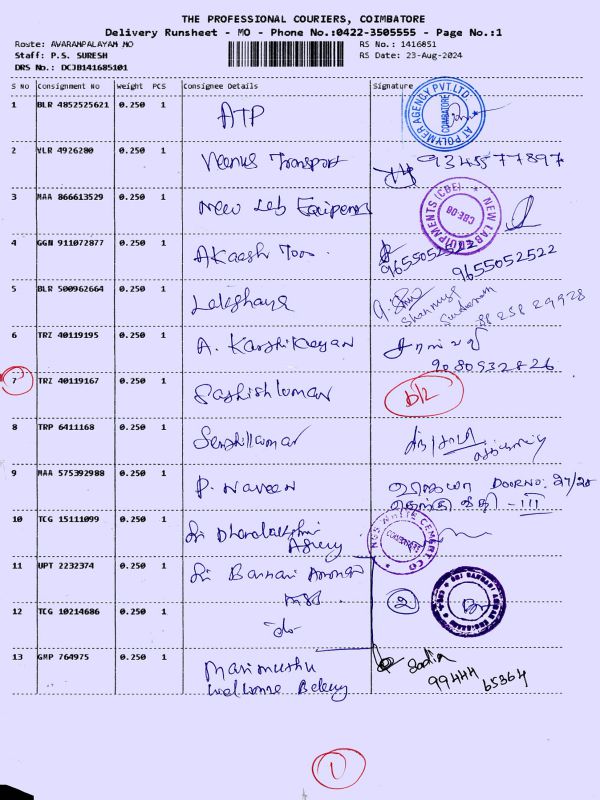 THE PROFESSIONAL COURIERS, COIMBATORE
Delivery Runsheet - MO - Phone No.:0422-3505555 - Page No.:1
Route: AVARAMPALAYAM MO
RS No.: 1416851
Staff: P.S. SURESH
RS Date: 23-Aug-2024
DRS No.: DCJB141685101
S No Consignment No Weight PCS Consignee Details Signature
1 BLR 4852525621 0.250 1 ATP
AT POLYMER AGENCY PVT LTD COIMBATORE
2 VLR 4926280 0.250 1 Venus Transport 9345577897
3 MAA 866613529 0.250 1 New Leb Equipments
NEW LAB EQUIPMENTS (CBE) CBE-08
4 GGN 911072877 0.250 1 Akaash 9655052522
9655052522
5 BLR 500962664 0.250 1 Lakshaya
6 TRZ 40119195 0.250 1 A. Karthikeyan
9080932826
7 TRZ 40119167 0.250 1 Sathishkumar
8 TRP 6411168 0.250 1 Senthilkumar
9 MAA 575392988 0.250 1 P. Naveen DOOR NO: 27/28
III
10 TCG 15111099 0.250 1 Sri Dhanalakshmi
Agency
WHITE CEMENT CO
11 UPT 2232374 0.250 1 Sri Bannari Amman
2
12 TCG 10214686 0.250 1 do
13 GMP 764975 0.250 1 Marimuthu
99444 65364
1